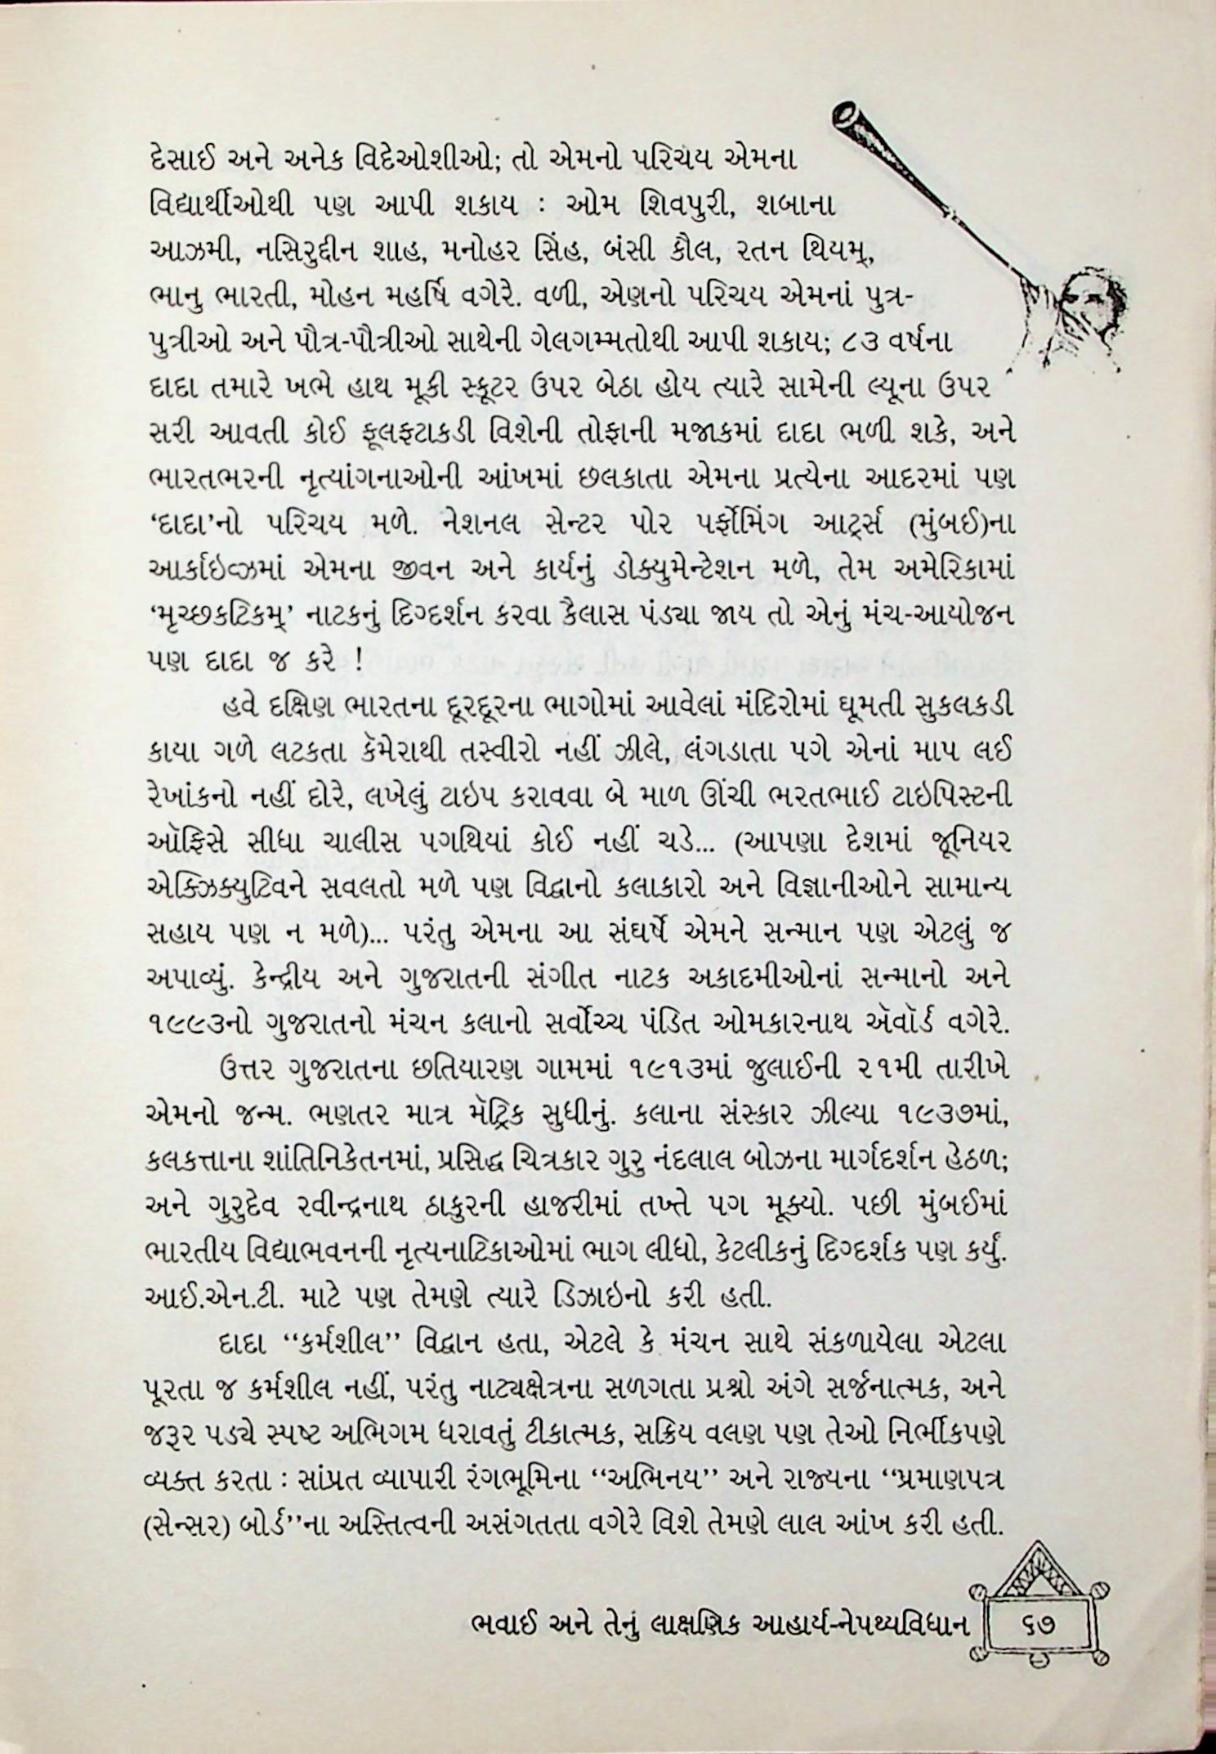 દેસાઈ અને અનેક વિદેઓશીઓ; તો એમનો પરિચય એમના
વિદ્યાર્થીઓથી પણ આપી શકાય : ઓમ શિવપુરી, શબાના
આઝમી, નસિરુદ્દીન શાહ, મનોહર સિંહ, બંસી કૌલ, રતન થિયમ્,
ભાનુ ભારતી, મોહન મહર્ષિ વગેરે. વળી, એણનો પરિચય એમનાં પુત્ર-
પુત્રીઓ અને પૌત્ર-પૌત્રીઓ સાથેની ગેલગમ્મતોથી આપી શકાય; ૮૩ વર્ષના
દાદા તમારે ખભે હાથ મૂકી સ્કૂટર ઉપર બેઠા હોય ત્યારે સામેની લ્યૂના ઉપર
સરી આવતી કોઈ ફૂલફટાકડી વિશેની તોફાની મજાકમાં દાદા ભળી શકે, અને
ભારતભરની નૃત્યાંગનાઓની આંખમાં છલકાતા એમના પ્રત્યેના આદરમાં પણ
‘દાદા’નો પરિચય મળે. નેશનલ સેન્ટર પોર પર્ફોર્મિંગ આર્ટ્સ (મુંબઈ)ના
આર્કાઇવ્ઝમાં એમના જીવન અને કાર્યનું ડોક્યુમેન્ટેશન મળે, તેમ અમેરિકામાં
‘મૃચ્છકટિકમ્’ નાટકનું દિગ્દર્શન કરવા કૈલાસ પંડ્યા જાય તો એનું મંચ-આયોજન
પણ દાદા જ કરે !
હવે દક્ષિણ ભારતના દૂરદૂરના ભાગોમાં આવેલાં મંદિરોમાં ઘૂમતી સુકલકડી
કાયા ગળે લટકતા કૅમેરાથી તસ્વીરો નહીં ઝીલે, લંગડાતા પગે એનાં માપ લઈ
રેખાંકનો નહીં દોરે, લખેલું ટાઇપ કરાવવા બે માળ ઊંચી ભરતભાઈ ટાઇપિસ્ટની
ઑફિસે સીધા ચાલીસ પગથિયાં કોઈ નહીં ચડે... (આપણા દેશમાં જૂનિયર
એક્ઝિક્યુટિવને સવલતો મળે પણ વિદ્વાનો કલાકારો અને વિજ્ઞાનીઓને સામાન્ય
સહાય પણ ન મળે)... પરંતુ એમના આ સંઘર્ષે એમને સન્માન પણ એટલું જ
અપાવ્યું. કેન્દ્રીય અને ગુજરાતની સંગીત નાટક અકાદમીઓનાં સન્માનો અને
૧૯૯૩નો ગુજરાતનો મંચન કલાનો સર્વોચ્ચ પંડિત ઓમકારનાથ ઍવૉર્ડ વગેરે.
ઉત્તર ગુજરાતના છતિયારણ ગામમાં ૧૯૧૩માં જુલાઈની ૨૧મી તારીખે
એમનો જન્મ. ભણતર માત્ર મૅટ્રિક સુધીનું. કલાના સંસ્કાર ઝીલ્યા ૧૯૩૭માં,
કલકત્તાના શાંતિનિકેતનમાં, પ્રસિદ્ધ ચિત્રકાર ગુરુ નંદલાલ બોઝના માર્ગદર્શન હેઠળ;
અને ગુરુદેવ રવીન્દ્રનાથ ઠાકુરની હાજરીમાં તખ્તે પગ મૂક્યો. પછી મુંબઈમાં
ભારતીય વિદ્યાભવનની નૃત્યનાટિકાઓમાં ભાગ લીધો, કેટલીકનું દિગ્દર્શક પણ કર્યું.
આઈ.એન.ટી. માટે પણ તેમણે ત્યારે ડિઝાઇનો કરી હતી.
દાદા “કર્મશીલ” વિદ્વાન હતા, એટલે કે મંચન સાથે સંકળાયેલા એટલા
પૂરતા જ કર્મશીલ નહીં, પરંતુ નાટ્યક્ષેત્રના સળગતા પ્રશ્નો અંગે સર્જનાત્મક, અને
જરૂર પડ્યે સ્પષ્ટ અભિગમ ધરાવતું ટીકાત્મક, સક્રિય વલણ પણ તેઓ નિર્ભીકપણે
વ્યક્ત કરતા : સાંપ્રત વ્યાપારી રંગભૂમિના “અભિનય” અને રાજ્યના “પ્રમાણપત્ર
(સેન્સર) બોર્ડ”ના અસ્તિત્વની અસંગતતા વગેરે વિશે તેમણે લાલ આંખ કરી હતી.
ભવાઈ અને તેનું લાક્ષણિક આહાર્ય-નેપથ્યવિધાન
૬૭